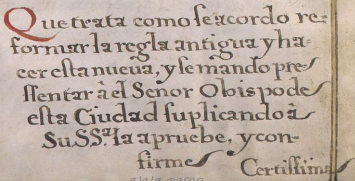 Que trata como se acordo re-
formar la regla antigua y ha-
cer esta nueua, y se mando pre-
ssentar à el Señor Obispo de
esta Ciudad suplicando à
Su SSª. la apruebe, y con-
firme
Certissima